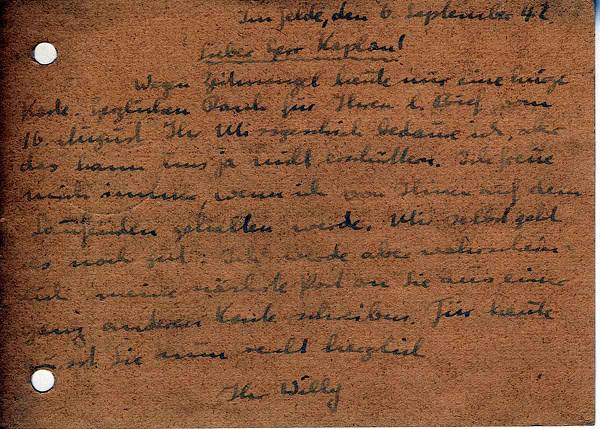 Im Felde, den 6. September 42
Lieber Herr Kaplan!
Wegen Zeitmangel heute nur eine kurze
Karte. Herzlichen Dank für Ihren l. Brief vom
16. August. Ihr Missgeschick bedaure ich, aber
das kann uns ja nicht erschüttern. Ich freue
mich immer, wenn ich von Ihnen auf dem
Laufenden gehalten werde. Mir selbst geht
es noch gut. Ich werde aber wahrschein-
lich meine nächste Post an Sie aus einer
ganz anderen Ecke schreiben. Für heute
grüsst Sie nun recht herzlich
Ihr Willy